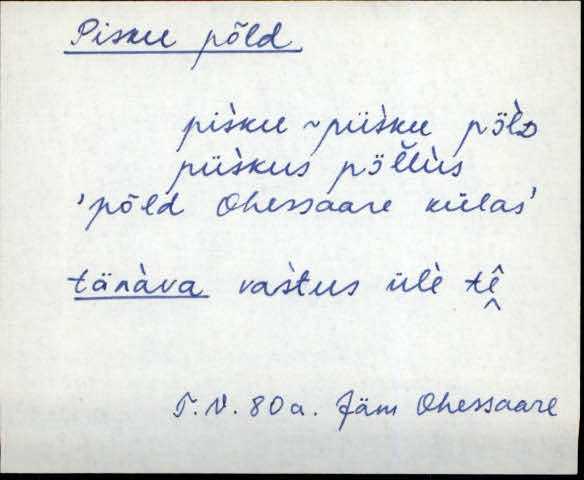 Pisku põld
pìsku ~ pìisku pö̀lᴅ
pìiskus pö̆l̆lùs
'põld Ohessaare külas'
tänàva vastus ülè tê̬
T.V. 80 a. Jäm Ohessaare